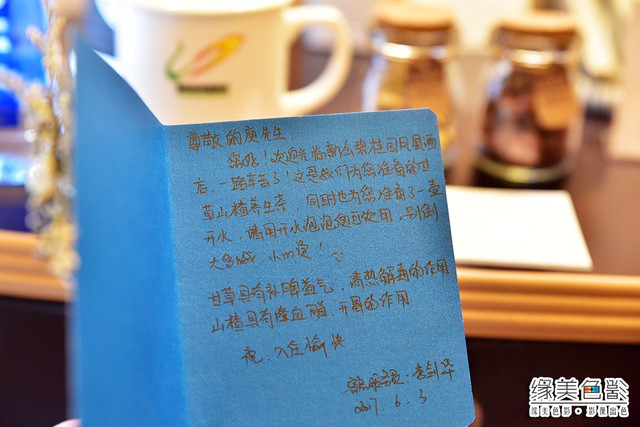 尊敬的庾先生
您好!欢迎光临新会碧桂园凤凰酒
店,一路辛苦了!这是我们为您准备的甘
草山楂养生茶 同时也为您准备了一壶
开水,请用开水泡泡便可饮用,
小心烫!
甘草具有补脾益气,清热解毒的作用
山楂具有降血脂、开胃的作用
祝:入住愉快
李剑华
2017 6. 3
缘美色影
缘美色影·影像出色